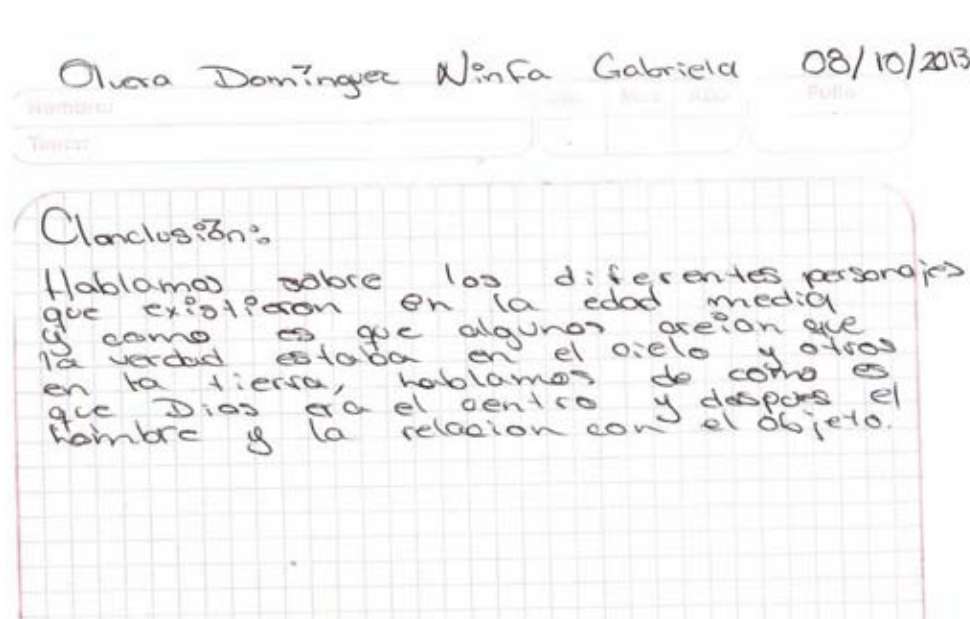 Olvera Domínguez Ninfa Gabriela 08/10/2013
Nombre
Folio
Conclusión:
Hablamos sobre los diferentes personajes
que existieron en la edad media
y como es que algunos creían que
la verdad estaba en el cielo y otros
en la tierra, hablamos de como es
que Dios era el centro y despues el
hombre y la relacion con el objeto.